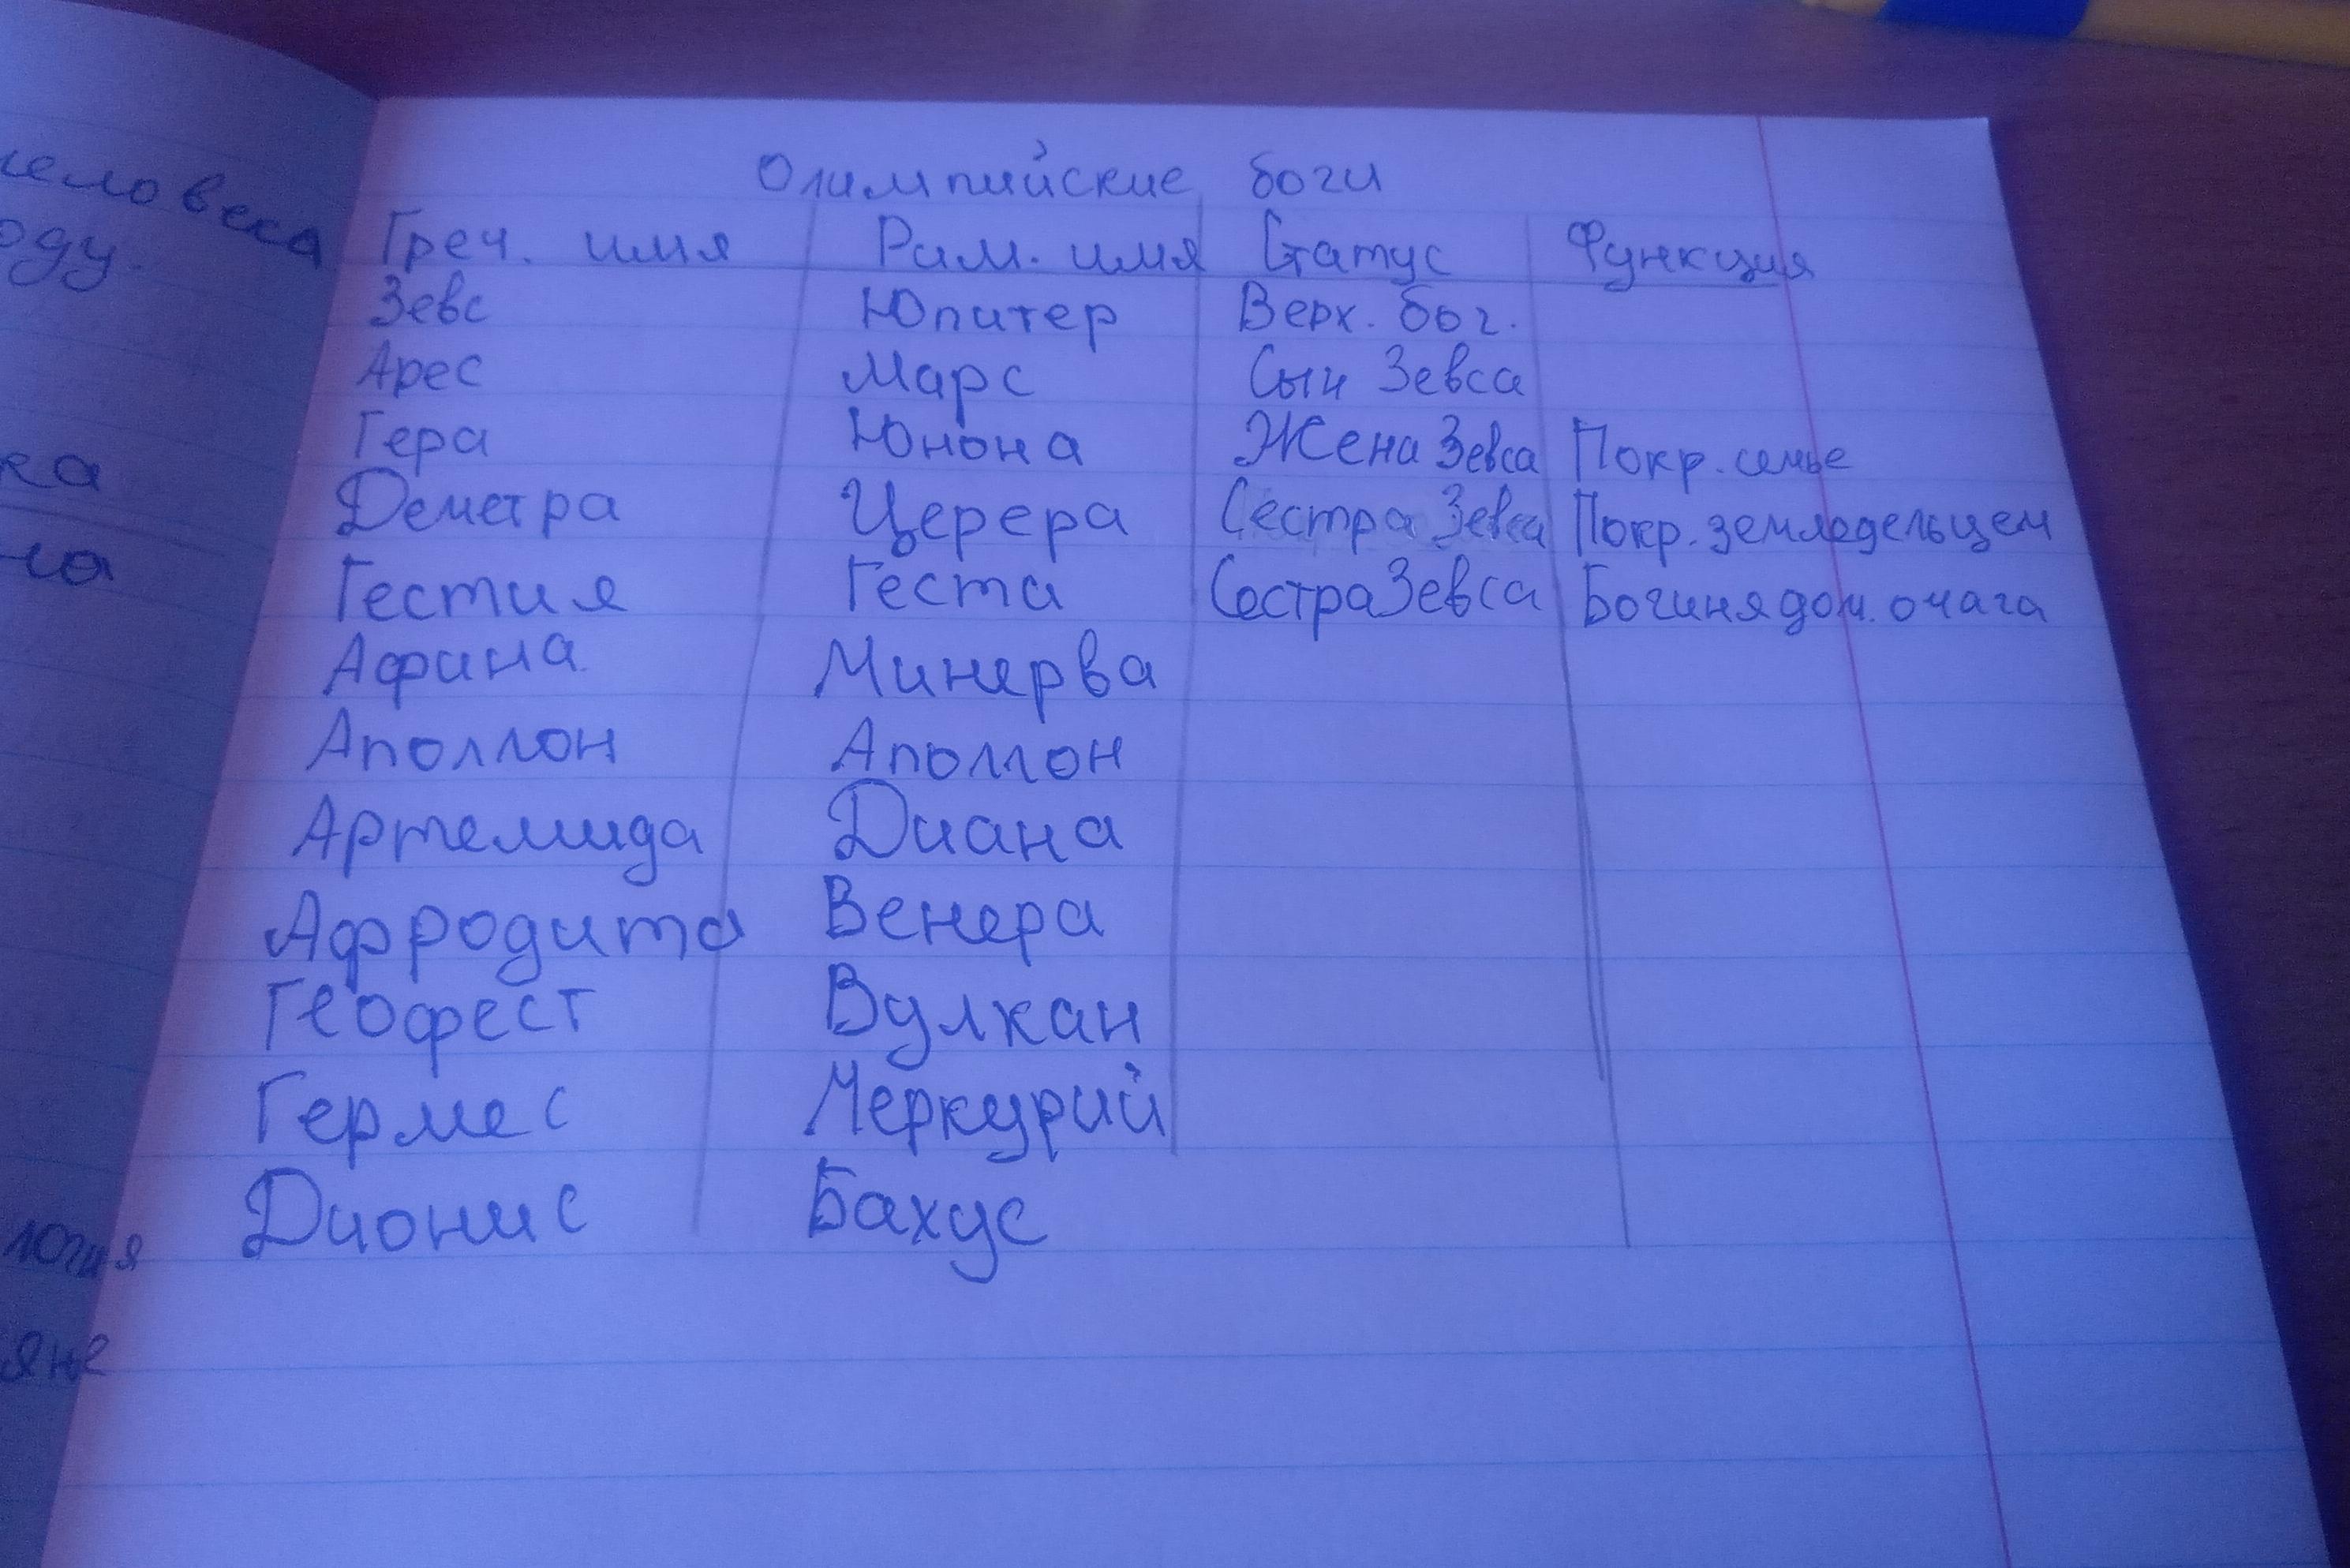 человека
оду.
ка
на
логия
яне
Олимпийские боги
Греч. имя Рим. имя Статус Функция
Зевс Юпитер Верх. бог.
Арес Марс Сын Зевса
Гера Юнона Жена Зевса Покр. семье
Деметра Церера Сестра Зевса Покр. земледельцем
Гестия Геста Сестра Зевса Богиня дом. очага
Афина Минерва
Аполлон Аполлон
Артемида Диана
Афродита Венера
Геофест Вулкан
Гермес Меркурий
Дионис Бахус